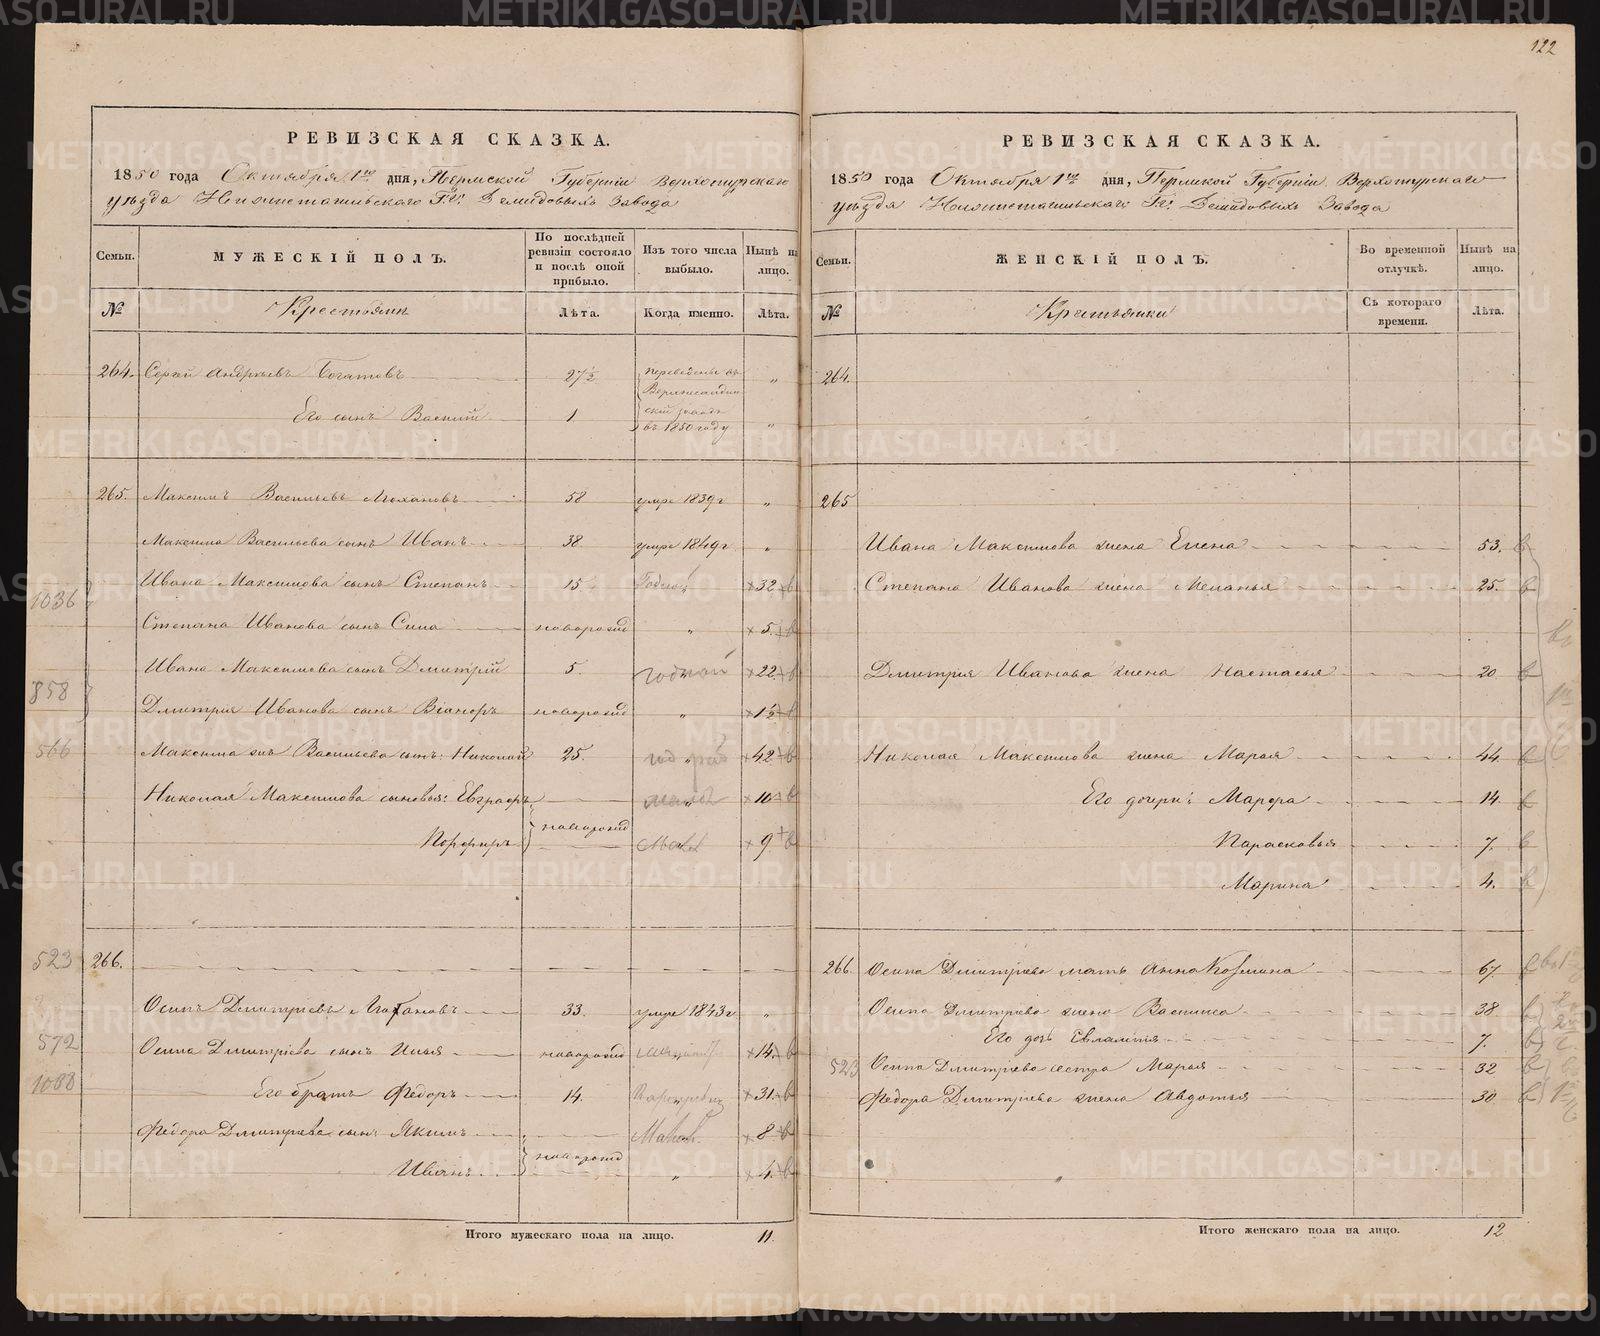 122
РЕВИЗСКАЯ СКАЗКА.
1850 года Октября 1го дня, Пермской Губерніи Верхотурскаго
уѣзда Нижнетагильскаго Гг. Демидовыхъ Завода
Семьи.
МУЖЕСКІЙ ПОЛЪ.
По послѣдней
ревизіи состояло
и послѣ оной
прибыло.
Изъ того числа
выбыло.
Нынѣ на
лицо.
№
Крестьяне
Лѣта.
Когда именно.
Лѣта.
264. Сергей Андреевъ Богатовъ 27½ переведены въ „
Его сынъ Василій 1.
скій заводъ
въ 1850 году „
265. Максимъ Васильевъ 58 умре 1839 г „
Максима Васильева сынъ Иванъ 38 умре 1849 г „
1036 Ивана Максимова сынъ Степанъ 15. Годной 32 в
Степана Иванова сынъ Сила новорожд „ 5. в
858 Ивана Максимова сынъ Дмитрій 5. годной 22 в
Дмитрія Иванова сынъ Віаноръ новорожд „ 1½ в
566 Максима Васильева сынъ Николай 25. 42 в
Николая Максимова сыновья: Евграфъ 10 в
Порфиръ новорожд 9 в
523 266.
Осипъ Дмитріевъ 33. умре 1843 г „
572 Осипа Дмитріева сынъ Илья новорожд 14 в
1088 Его братъ Федоръ 14. 31 в
Федора Дмитріева сын: Якимъ 8 в
Иванъ новорожд „ 4. в
Итого мужескаго пола на лицо. 11.
РЕВИЗСКАЯ СКАЗКА.
1850 года Октября 1го дня, Пермской Губерніи Верхотурскаго
уѣзда Нижнетагильскаго Гг. Демидовыхъ Завода
Семьи.
ЖЕНСКІЙ ПОЛЪ.
Во временной
отлучкѣ.
Нынѣ на
лицо.
№
Крестьянки
Съ котораго
времени.
Лѣта.
264.
265
Ивана Максимова жена Елена 53. в
Степана Иванова жена Меланья 25. в
Дмитрія Иванова жена Настасья 20 в
Николая Максимова жена Марья 44. в
Его дочери: Марфа 14. в
Парасковья 7. в
Марина 4. в
266. Осипа Дмитріева мать Анна Козмина 67. в
Осипа Дмитріева жена Василиса 38 в
Его дочь Евлампія 7. в
523 Осипа Дмитріева сестра Марья 32 в
Федора Дмитріева жена Авдотья 30 в
Итого женскаго пола на лицо. 12
METRIKI.GASO-URAL.RU